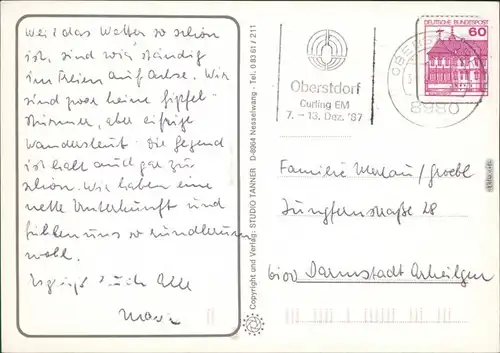 weil das Wetter so schön
ist, sind wir ständig
im Freien auf Achse. Wir
sind zwar keine Gipfel-
stürmer, aber eifrige
Wandersleut. Die Gegend
ist halt auch gar zu
schön. Wir haben eine
nette Unterkunft und
fühlen uns so rundherum
wohl.
Es grüßt Euch Alle
Copyright und Verlag: STUDIO TANNER D-8964 Nesselwang - Tel. 0 83 61 / 211
Oberstdorf
Curling EM
7. - 13. Dez. '87
OBERSTDORF
8980
DEUTSCHE BUNDESPOST
60
Familie
Jungfernstraße 28
6100 Darmstadt Arheilgen